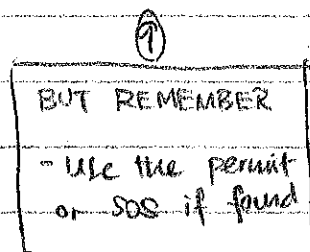 ↑
BUT REMEMBER
- Use the permit
or SOS if found